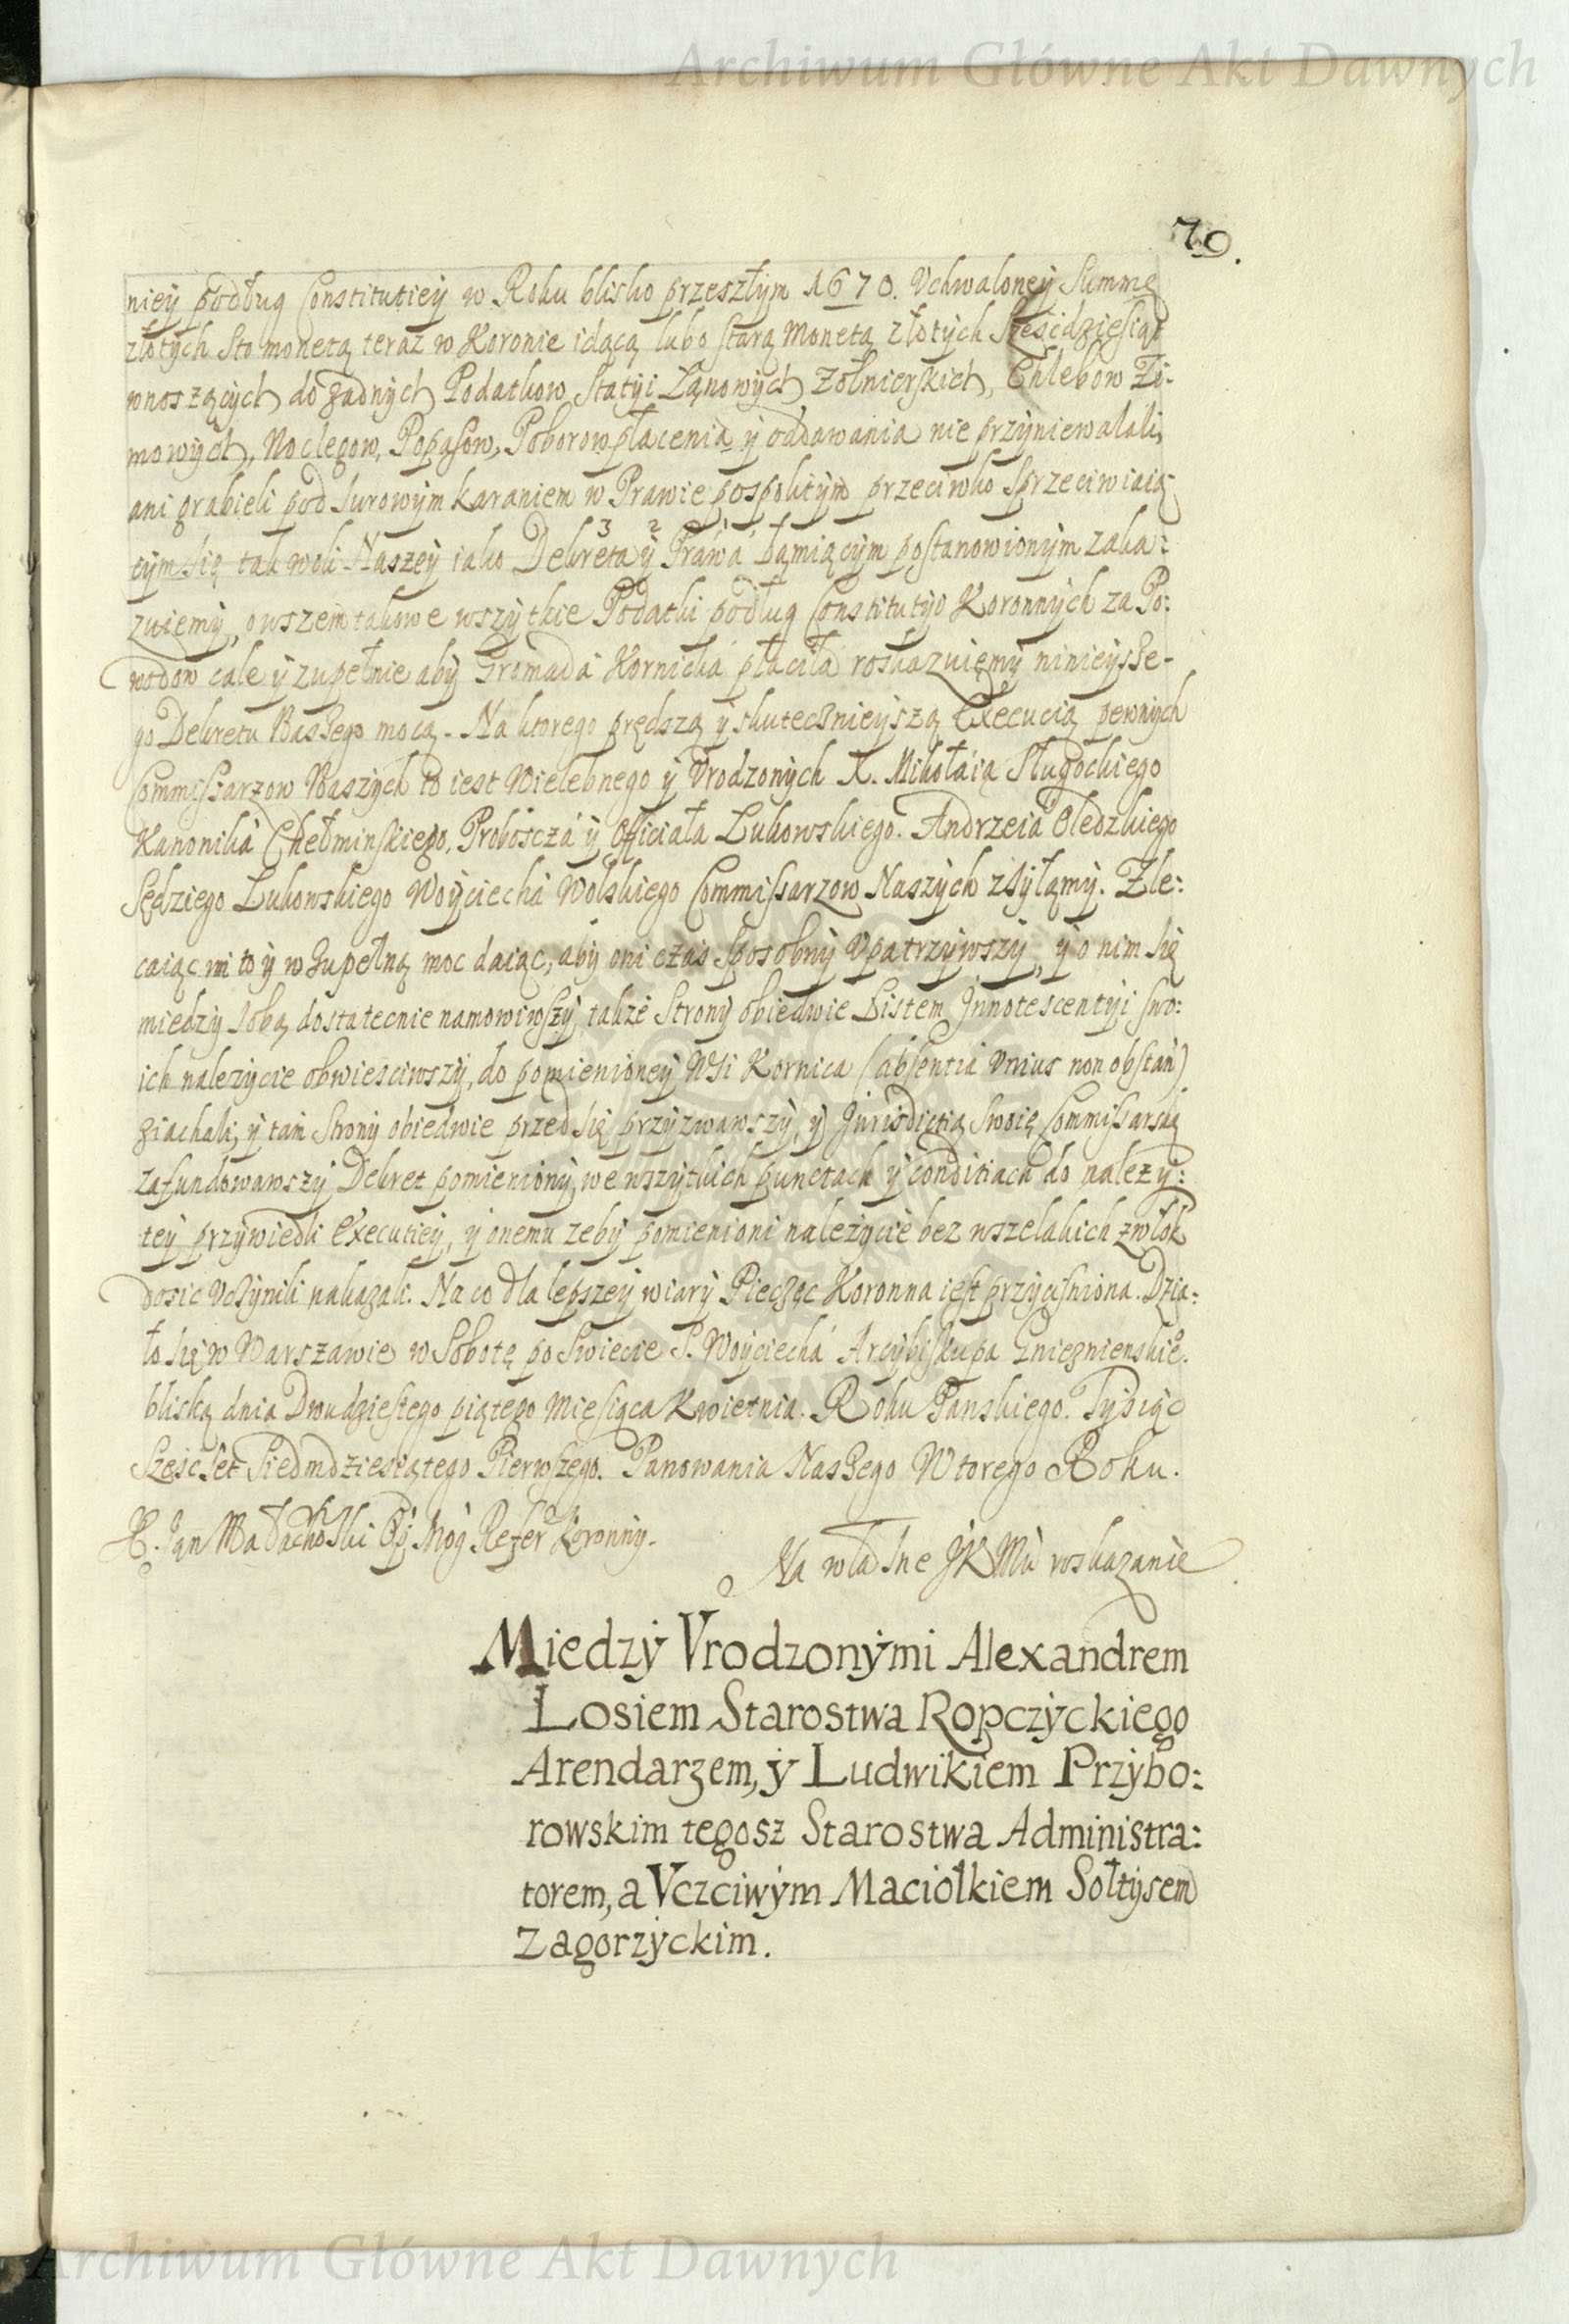 Archiwum Główne Akt Dawnych
70.
niey podług Constitutiey w Roku blisko przeszłym 1670. Vchwaloney Summę
złotych sto monetą teraz w Koronie idącą lubo starą Monetą złotych sześcidziesiąt
wnoszących do żadnych Podatkow Statyi Łanowych żołnierskich, Chlebow Zi-
mowych, Noclegow, Popasow, Poborow płacenia y oddawania nie przyniewalali,
ani grabieli pod surowym karaniem w Prawie pospolitym przeciwko sprzeciwiaią-
3 2
cym się tak woli Naszey iako Dekreta y Práwá łamiącym postanowionym zaka:
zuiemy, owszem takowe wszytkie Podatki podług Constitutyo Koronnych za Po:
wodow cale y zupełnie aby Gromadá Kornicka płaciłá roskazuiemy ninieysze-
go Dekretu Naszego mocą. Na ktorego prędszą y skutecznieyszą Executią pewnych
Commissarzow Naszych to iest Wielebnego y Vrodzonych X. Mikołáia Sługockiego
Kanoniká Chełminskiego, Proboszczá y Officiała Lukowskiego. Andrzeiá Oledzkiego
Sędziego Lukowskiego Woyciechá Wolskiego Commissarzow Naszych zsyłamy. Zle:
caiąc im to y w zupełną moc daiąc, aby oni czás sposobny Vpatrzywszy, y o nim się
miedzy sobą dostatecnie namowiwszy, także Strony obiedwie Listem Innotescentyi swo:
ich należycie obwiesciwszy, do pomienioney Wsi Kornica (absentia Vnius non obstan)
ziachali, y tam Strony obiedwie przed się przyzwawszy, y Jurisdictią swoię Commissarską
zafundowawszy Dekret pomieniony, we wszytkich punctach y conditiach do należy:
tey przywiedli Executiey, y onemu żeby pomienioni należycie bez wszelakich zwłok
dosic Vczynili nakazali. Na co dla lepszey wiary Pieczęc Koronna iest przycisniona. Dzia:
ło się w Warszawie w Sobotę po Swiecie S. Woyciechá Arcybiskupa Gnieznienskie.
bliską dnia Dwudziestego piątego Miesiąca Kwietnia. Roku Panskiego. Tysiąc
Szescset Siedmdziesiątego Pierwszego. Panowania Naszego Wtorego Roku.
X. Jan Małachoski Op. Mog. Refer Koronny.
Na własne JKMci roskazanie
Miedzy Vrodzonymi Alexandrem
Losiem Starostwa Ropczyckiego
Arendarzem, y Ludwikiem Przybo:
rowskim tegosz Starostwa Administra:
torem, a Vczciwym Maciołkiem Sołtysem
Zagorzyckim.
Archiwum Główne Akt Dawnych